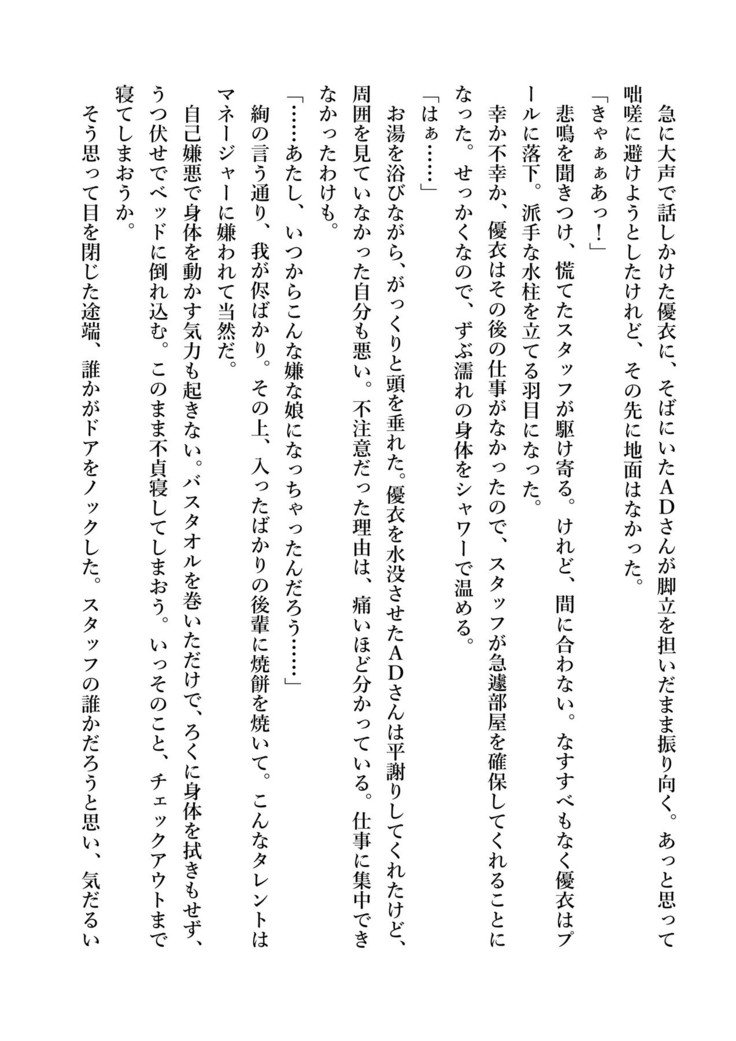 急に大声で話しかけた優衣に、そばにいたＡＤさんが脚立を担いだまま振り向く。あっと思って
咄嗟に避けようとしたけれど、その先に地面はなかった。
「きゃぁぁあっ！」
　悲鳴を聞きつけ、慌てたスタッフが駆け寄る。けれど、間に合わない。なすすべもなく優衣はプ
ールに落下。派手な水柱を立てる羽目になった。
　幸か不幸か、優衣はその後の仕事がなかったので、スタッフが急遽部屋を確保してくれることに
なった。せっかくなので、ずぶ濡れの身体をシャワーで温める。
「はぁ……」
　お湯を浴びながら、がっくりと頭を垂れた。優衣を水没させたＡＤさんは平謝りしてくれたけど、
周囲を見ていなかった自分も悪い。不注意だった理由は、痛いほど分かっている。仕事に集中でき
なかったわけも。
「……あたし、いつからこんな嫌な娘になっちゃったんだろう……」
　絢の言う通り、我が侭ばかり。その上、入ったばかりの後輩に焼餅を焼いて。こんなタレントは
マネージャーに嫌われて当然だ。
　自己嫌悪で身体を動かす気力も起きない。バスタオルを巻いただけで、ろくに身体を拭きもせず、
うつ伏せでベッドに倒れ込む。このまま不貞寝してしまおう。いっそのこと、チェックアウトまで
寝てしまおうか。
　そう思って目を閉じた途端、誰かがドアをノックした。スタッフの誰かだろうと思い、気だるい